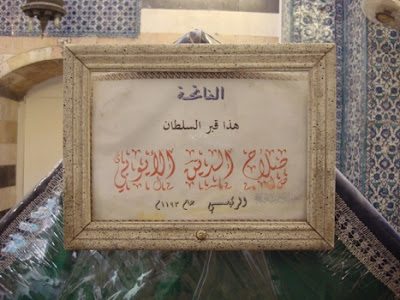 الفاتحة
هذا قبر السلطان
صلاح الدين الأيوبي
الرئيسي عام ١١٩٣م